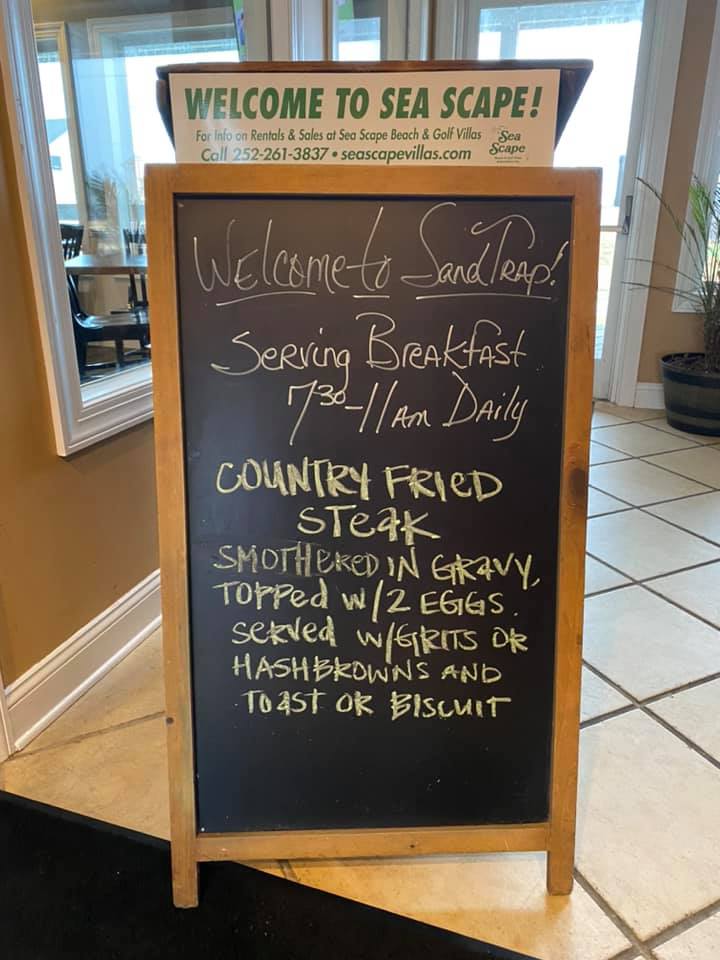 WELCOME TO SEA SCAPE!
For Info on Rentals & Sales at Sea Scape Beach & Golf Villas
Call 252-261-3837 • seascapevillas.com
Sea
Scape
Welcome to Sand Trap!
Serving Breakfast
730-11 Am Daily
COUNTRY FRIED
STEAK
SMOTHERED IN GRAVY,
TOPPED W/2 EGGS.
SERVED W/GRITS OR
HASHBROWNS AND
TOAST OR BISCUIT